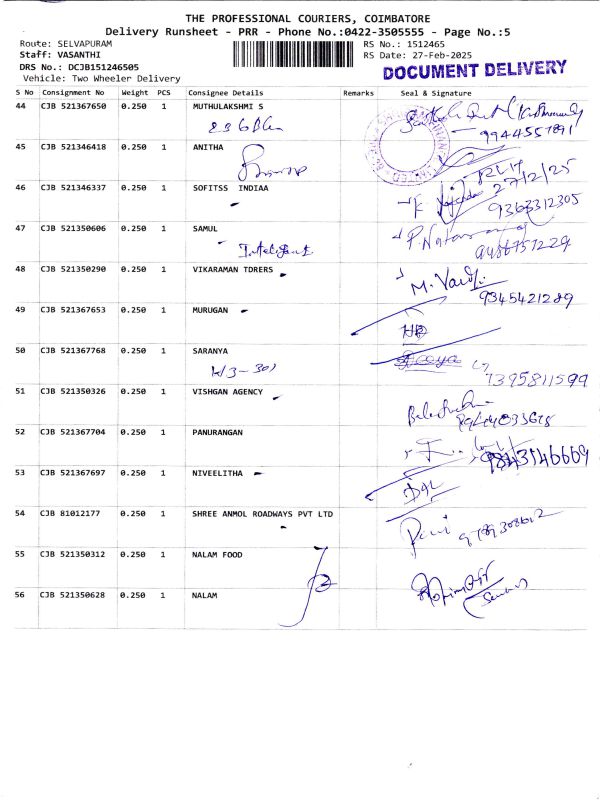 THE PROFESSIONAL COURIERS, COIMBATORE
Delivery Runsheet - PRR - Phone No.:0422-3505555 - Page No.:5
Route: SELVAPURAM RS No.: 1512465
Staff: VASANTHI RS Date: 27-Feb-2025
DRS No.: DCJB151246505 DOCUMENT DELIVERY
Vehicle: Two Wheeler Delivery
S No Consignment No Weight PCS Consignee Details Remarks Seal & Signature
44 CJB 521367650 0.250 1 MUTHULAKSHMI S
9944557891
45 CJB 521346418 0.250 1 ANITHA
27/2/25
46 CJB 521346337 0.250 1 SOFITSS INDIAA
9363312305
47 CJB 521350606 0.250 1 SAMUL
9486757229
48 CJB 521350290 0.250 1 VIKARAMAN TDRERS
9345421289
49 CJB 521367653 0.250 1 MURUGAN
50 CJB 521367768 0.250 1 SARANYA
H3-301
7395811599
51 CJB 521350326 0.250 1 VISHGAN AGENCY
52 CJB 521367704 0.250 1 PANURANGAN
9843146669
53 CJB 521367697 0.250 1 NIVEELITHA
54 CJB 81012177 0.250 1 SHREE ANMOL ROADWAYS PVT LTD
9789308612
55 CJB 521350312 0.250 1 NALAM FOOD
56 CJB 521350628 0.250 1 NALAM